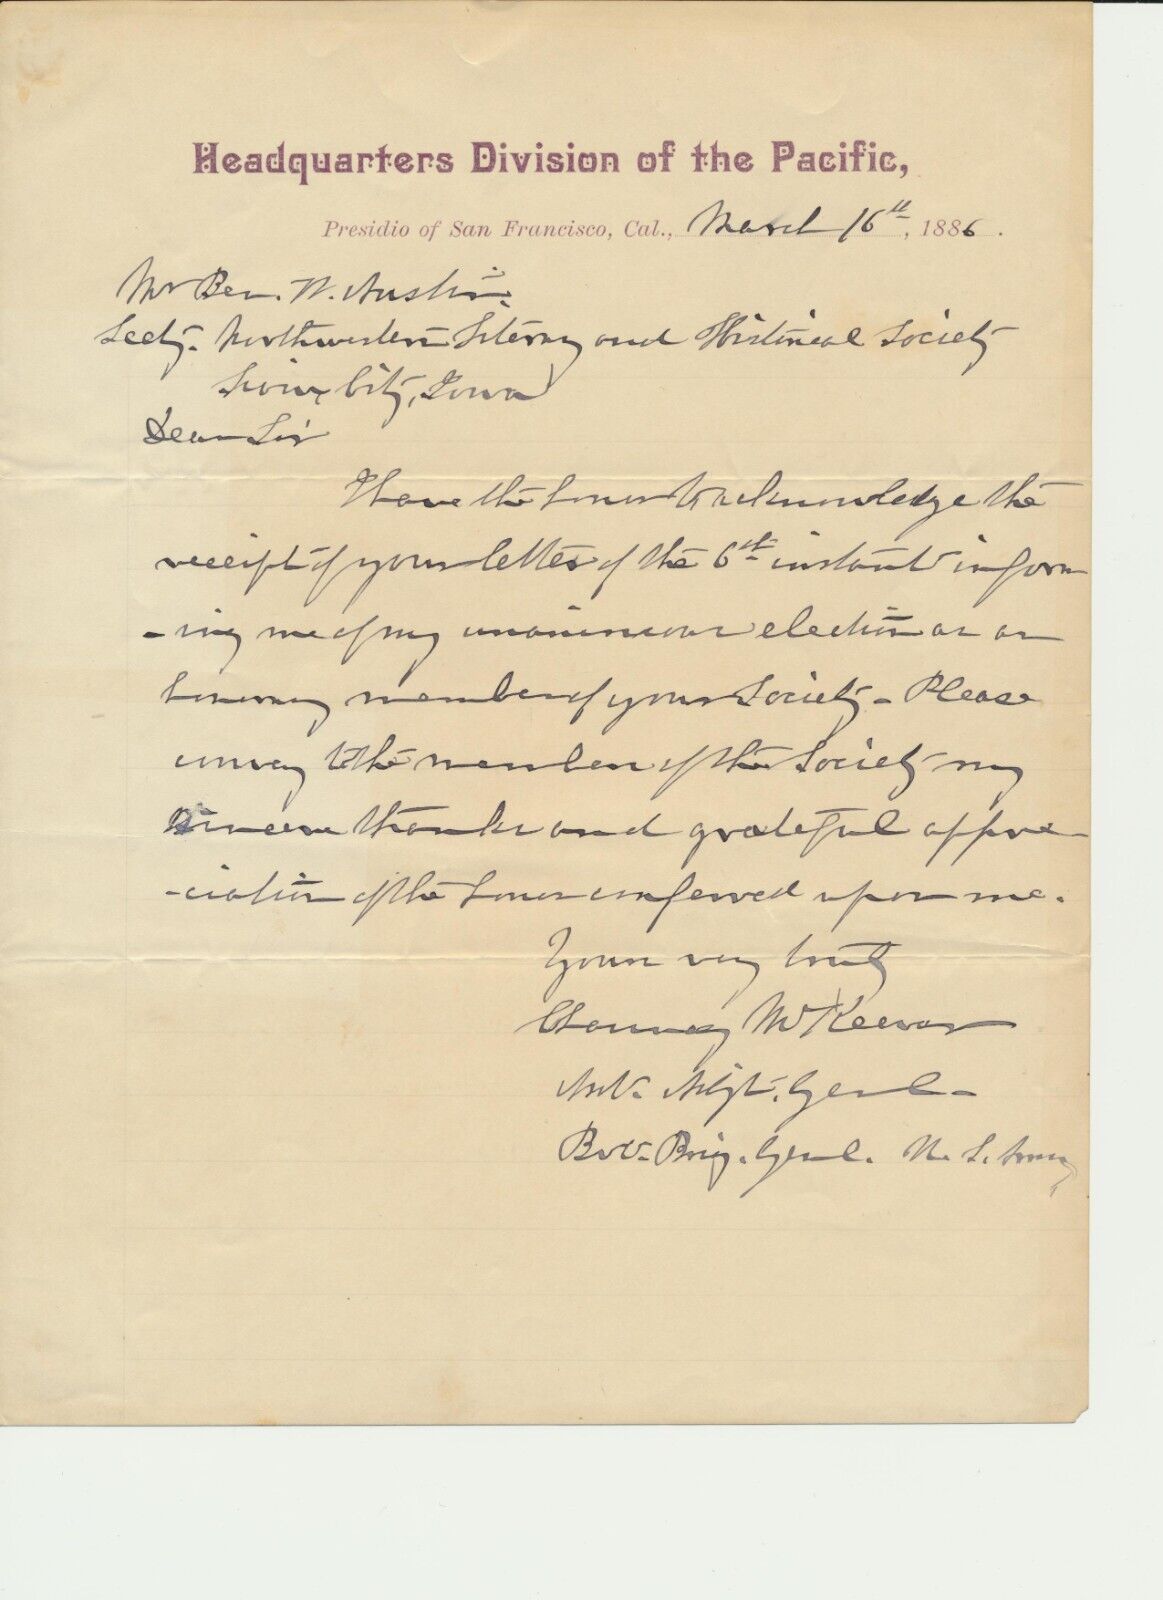 Headquarters Division of the Pacific,
Presidio of San Francisco, Cal., March 16th, 1886.
Mr Ben. W. Austin.
Secty. Northwestern Literary and Historical Society
Sioux City, Iowa
Dear Sir
I have the honor to acknowledge the
receipt of your letter of the 6th instant inform
-ing me of my unanimous election as an
honorary member of your Society - Please
convey to the members of the Society my
sincere thanks and grateful appre-
-ciation of the honor conferred upon me.
Yours very truly
Chauncey McKeever
Asst. Adjt. Genl-
Bvt. Brig. Genl. U. S. Army